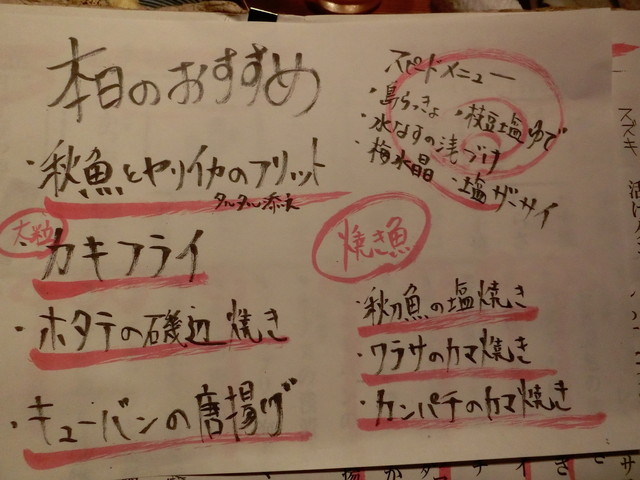 本日のおすすめ
・秋魚とヤリイカのフリット
タルタル添え
大粒
・カキフライ
・ホタテの磯辺焼き
・キューバンの唐揚げ
スピードメニュー
・島らっきょ ・枝豆塩ゆで
・水なすの浅づけ
・梅水晶 ・塩ザーサイ
焼き魚
・秋刀魚の塩焼き
・ワラサのカマ焼き
・カンパチのカマ焼き
スズキ